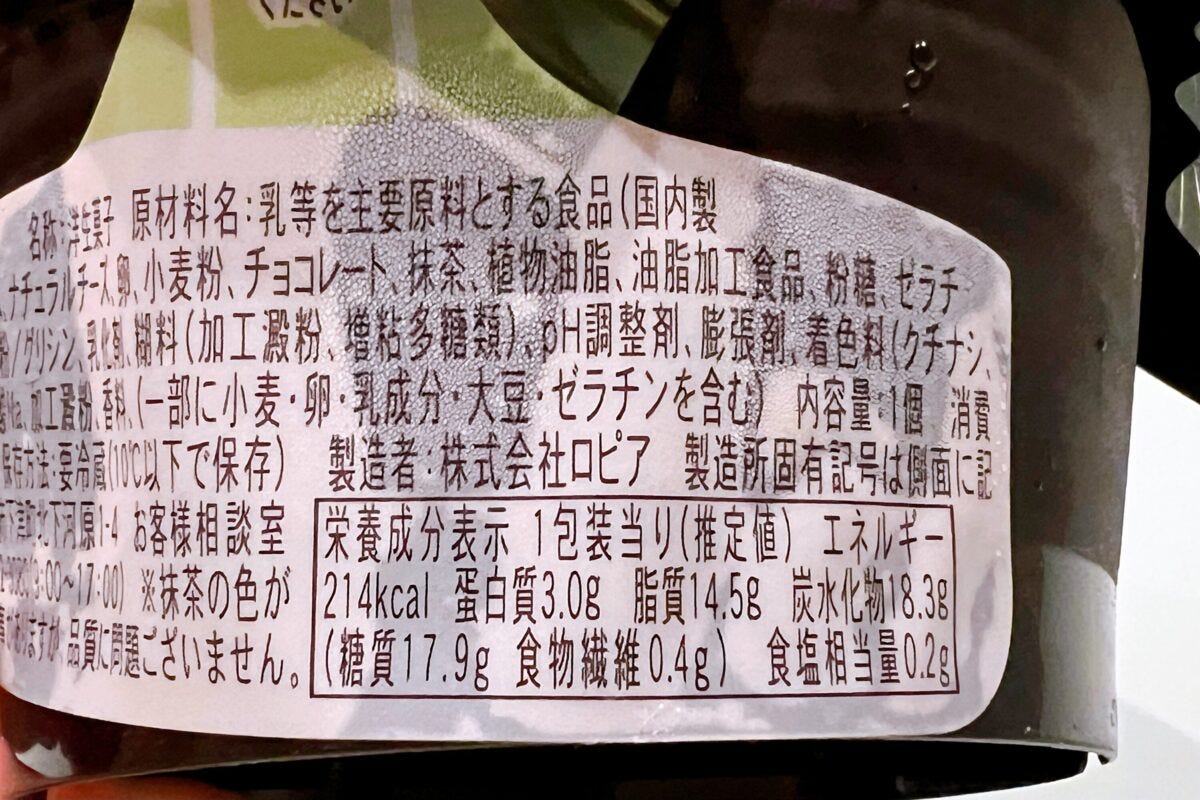 ください
名称:洋生菓子 原材料名:乳等を主要原料とする食品(国内製
ナチュラルチーズ、卵、小麦粉、チョコレート、抹茶、植物油脂、油脂加工食品、粉糖、ゼラチ
粉/グリシン、乳化剤、糊料(加工澱粉、増粘多糖類)、pH調整剤、膨張剤、着色料(クチナシ、
加工澱粉、香料、(一部に小麦・卵・乳成分・大豆・ゼラチンを含む) 内容量:1個 消費
保存方法:要冷蔵(10℃以下で保存) 製造者:株式会社ロピア 製造所固有記号は側面に記
北下河原1-4 お客様相談室
(9:00~17:00) ※抹茶の色が
ありますが、品質に問題ございません。
栄養成分表示 1包装当り(推定値) エネルギー
214kcal 蛋白質3.0g 脂質14.5g 炭水化物18.3g
(糖質17.9g 食物繊維0.4g) 食塩相当量0.2g